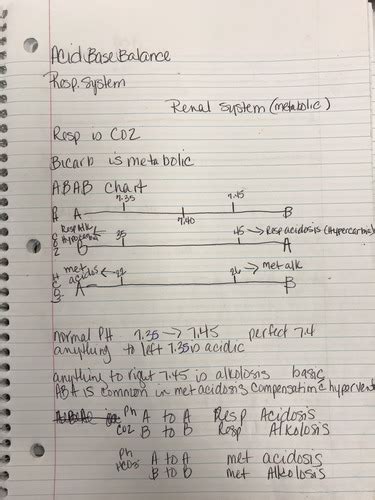 Acid Base Balance
Resp. System
Renal System (metabolic)
Resp is CO2
Bicarb is metabolic
ABAB chart
7.35 7.45
PH A 7.40 B
CO2 Resp Alk Hypocarbia B 35 45 → Resp acidosis (Hypercarbia) A
HCO3 met acidosis A ← 22 26 → met alk B
normal PH 7.35 → 7.45 perfect 7.4
anything to left 7.35 is acidic
anything to right 7.45 is alkolosis basic
is common in met acidosis compensation hypervent
Ph A to A Resp Acidosis
CO2 B to B Resp Alkolosis
Ph A to A met acidosis
HCO3 B to B met Alkolosis